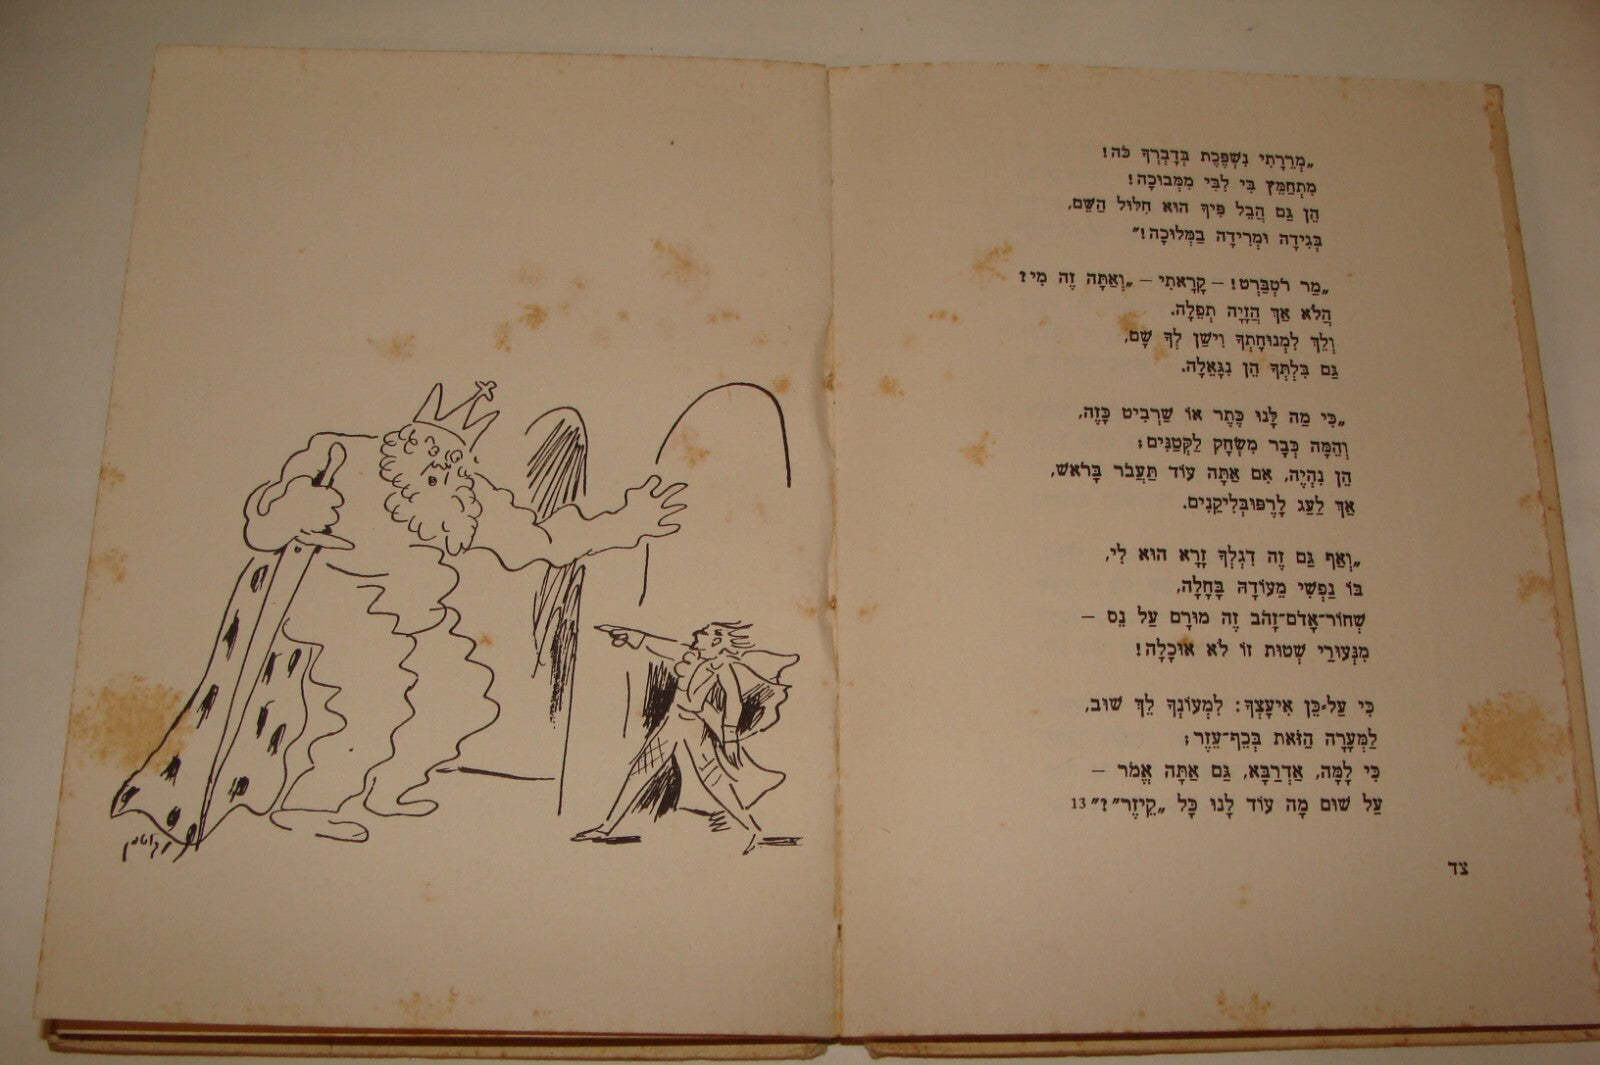 „מְרֵרָתִי נִשְׁפֶּכֶת בְּדָבְרְךָ כֹּה!
מִתְחַמֵּץ בִּי לִבִּי מִמְּבוּכָה!
הֵן גַּם הֲבֵל פִּיךָ הוּא חִלּוּל הַשֵּׁם,
בְּגִידָה וּמְרִידָה בַמְּלוּכָה!”
„מַר רֹטְבַּרְט! – קָרָאתִי – „וְאַתָּה זֶה מִי?
הֲלֹא אַךְ הֲזָיָה תְפֵלָה.
וְלֵךְ לִמְנוּחָתְךָ וִישַׁן לְךָ שָׁם,
גַּם בִּלְתְּךָ הֵן נִגָּאֵלָה.
„כִּי מַה לָּנוּ כֶּתֶר אוֹ שַׁרְבִיט כָּזֶה,
וְהֵמָּה כְּבָר מִשְׂחָק לַקְּטַנִּים;
הֵן נִהְיֶה, אִם אַתָּה עוֹד תַּעֲבֹר בָּרֹאשׁ,
אַךְ לַעַג לָרֶפּוּבְּלִיקָנִים.
„וְאַף גַּם זֶה דִגְלְךָ זָרָא הוּא לִי,
בּוֹ נַפְשִׁי מֵעוֹדָהּ בָּחָלָה,
שְׁחוֹר־אָדֹם־זָהֹב זֶה מוּרָם עַל נֵס –
מִנְּעוּרַי שְׁטוּת זוֹ לֹא אוּכָלָה!
כִּי עַל־כֵּן אִיעָצְךָ: לִמְעוֹנְךָ לֵךְ שׁוּב,
לַמְּעָרָה הַזֹּאת בְּכֵף־עֵזֶר;
כִּי לָמָּה, אַדְרַבָּא, גַּם אַתָּה אֱמֹר –
עַל שׁוּם מָה עוֹד לָנוּ כָּל „קֵיזֶר”?” 13
צד